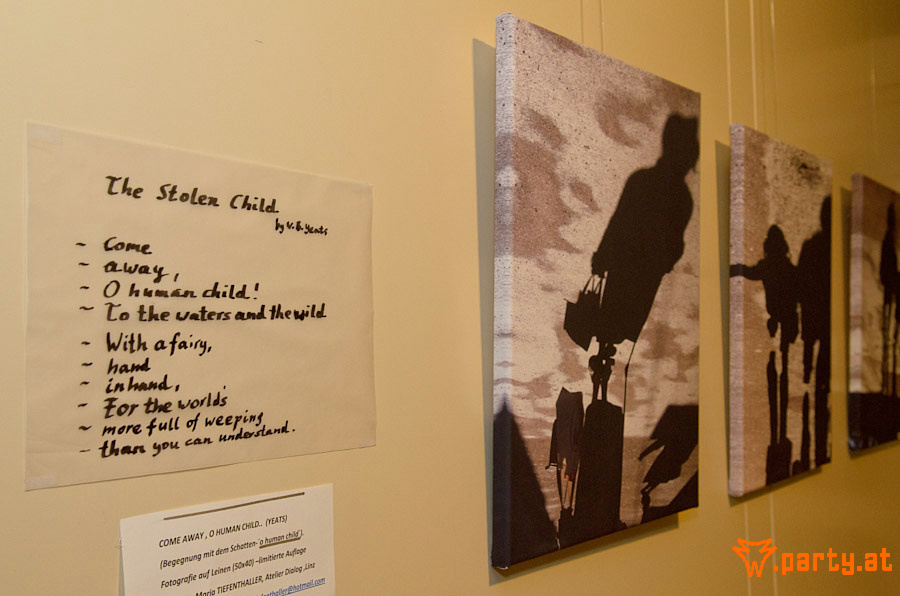 The Stolen Child
by W. B. Yeats
~ Come
~ away,
~ O human child!
~ To the waters and the wild
~ With a fairy,
~ hand
~ in hand,
~ For the worlds'
~ more full of weeping
~ than you can understand.
COME AWAY , O HUMAN CHILD.. (YEATS)
(Begegnung mit dem Schatten-'o human child').
Fotografie auf Leinen (50x40) –limitierte Auflage
Maria TIEFENTHALLER, Atelier Dialog ,Linz
enthaller@hotmail.com
w.party.at